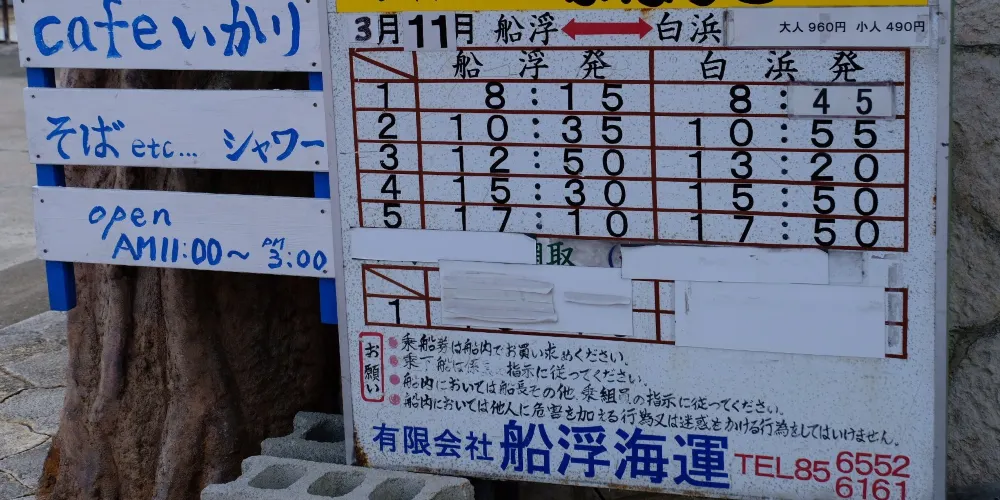 cafe いかり
そば etc... シャワー
open
AM11:00〜PM3:00
3月 11月 船浮 ⟷ 白浜 大人 960円 小人 490円
船浮発 白浜発
1 8:15 8:45
2 10:35 10:55
3 12:50 13:20
4 15:30 15:50
5 17:10 17:50
1
お願い
乗船券は船内でお買い求めください。
乗下船は 指示に従ってください。
船内においては船長その他、乗組員の指示に従ってください。
船内においては他人に危害を加える行為又は迷惑をかける行為をしてはいけません。
有限会社 船浮海運 TEL85 6552
6161